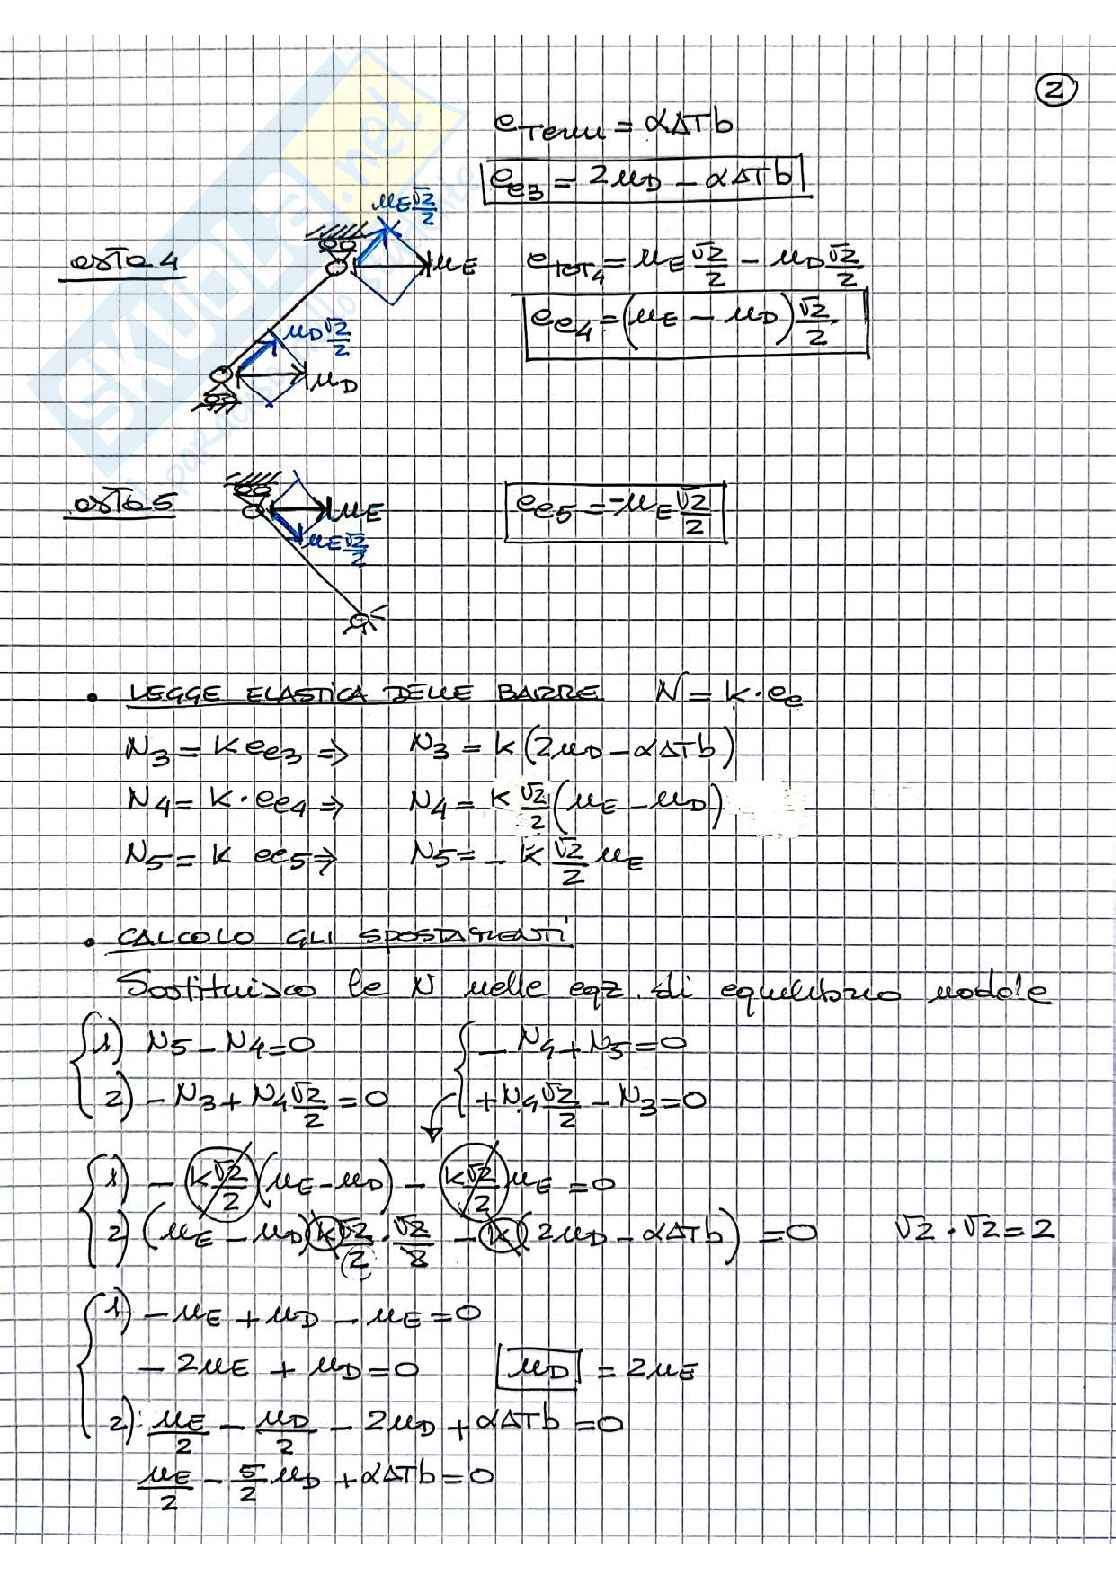 2
e_Term = αΔTb
e_e3 = 2u_D - αΔTb
u_E √2/2
asta 4
u_E
e_tot4 = u_E √2/2 - u_D √2/2
e_e4 = (u_E - u_D) √2/2
u_D √2/2
u_D
asta 5
u_E
e_e5 = -u_E √2/2
u_E √2/2
• LEGGE ELASTICA DELLE BARRE N = k·e_e
N_3 = k e_e3 ⇒ N_3 = k(2u_D - αΔTb)
N_4 = k·e_e4 ⇒ N_4 = k √2/2 (u_E - u_D)
N_5 = k e_e5 ⇒ N_5 = - k √2/2 u_E
• CALCOLO GLI SPOSTAMENTI
Sostituisco le N nelle eqz. di equilibrio nodale
1) N_5 - N_4 = 0 - N_4 + N_5 = 0
2) - N_3 + N_4 √2/2 = 0 + N_4 √2/2 - N_3 = 0
1) - k√2/2 (u_E - u_D) - k√2/2 u_E = 0
2) (u_E - u_D) k √2/2 · √2/2 - k (2u_D - αΔTb) = 0 √2·√2 = 2
1) - u_E + u_D - u_E = 0
- 2u_E + u_D = 0 u_D = 2u_E
2): u_E/2 - u_D/2 - 2u_D + αΔTb = 0
u_E/2 - 5/2 u_D + αΔTb = 0
SKUOLA.net